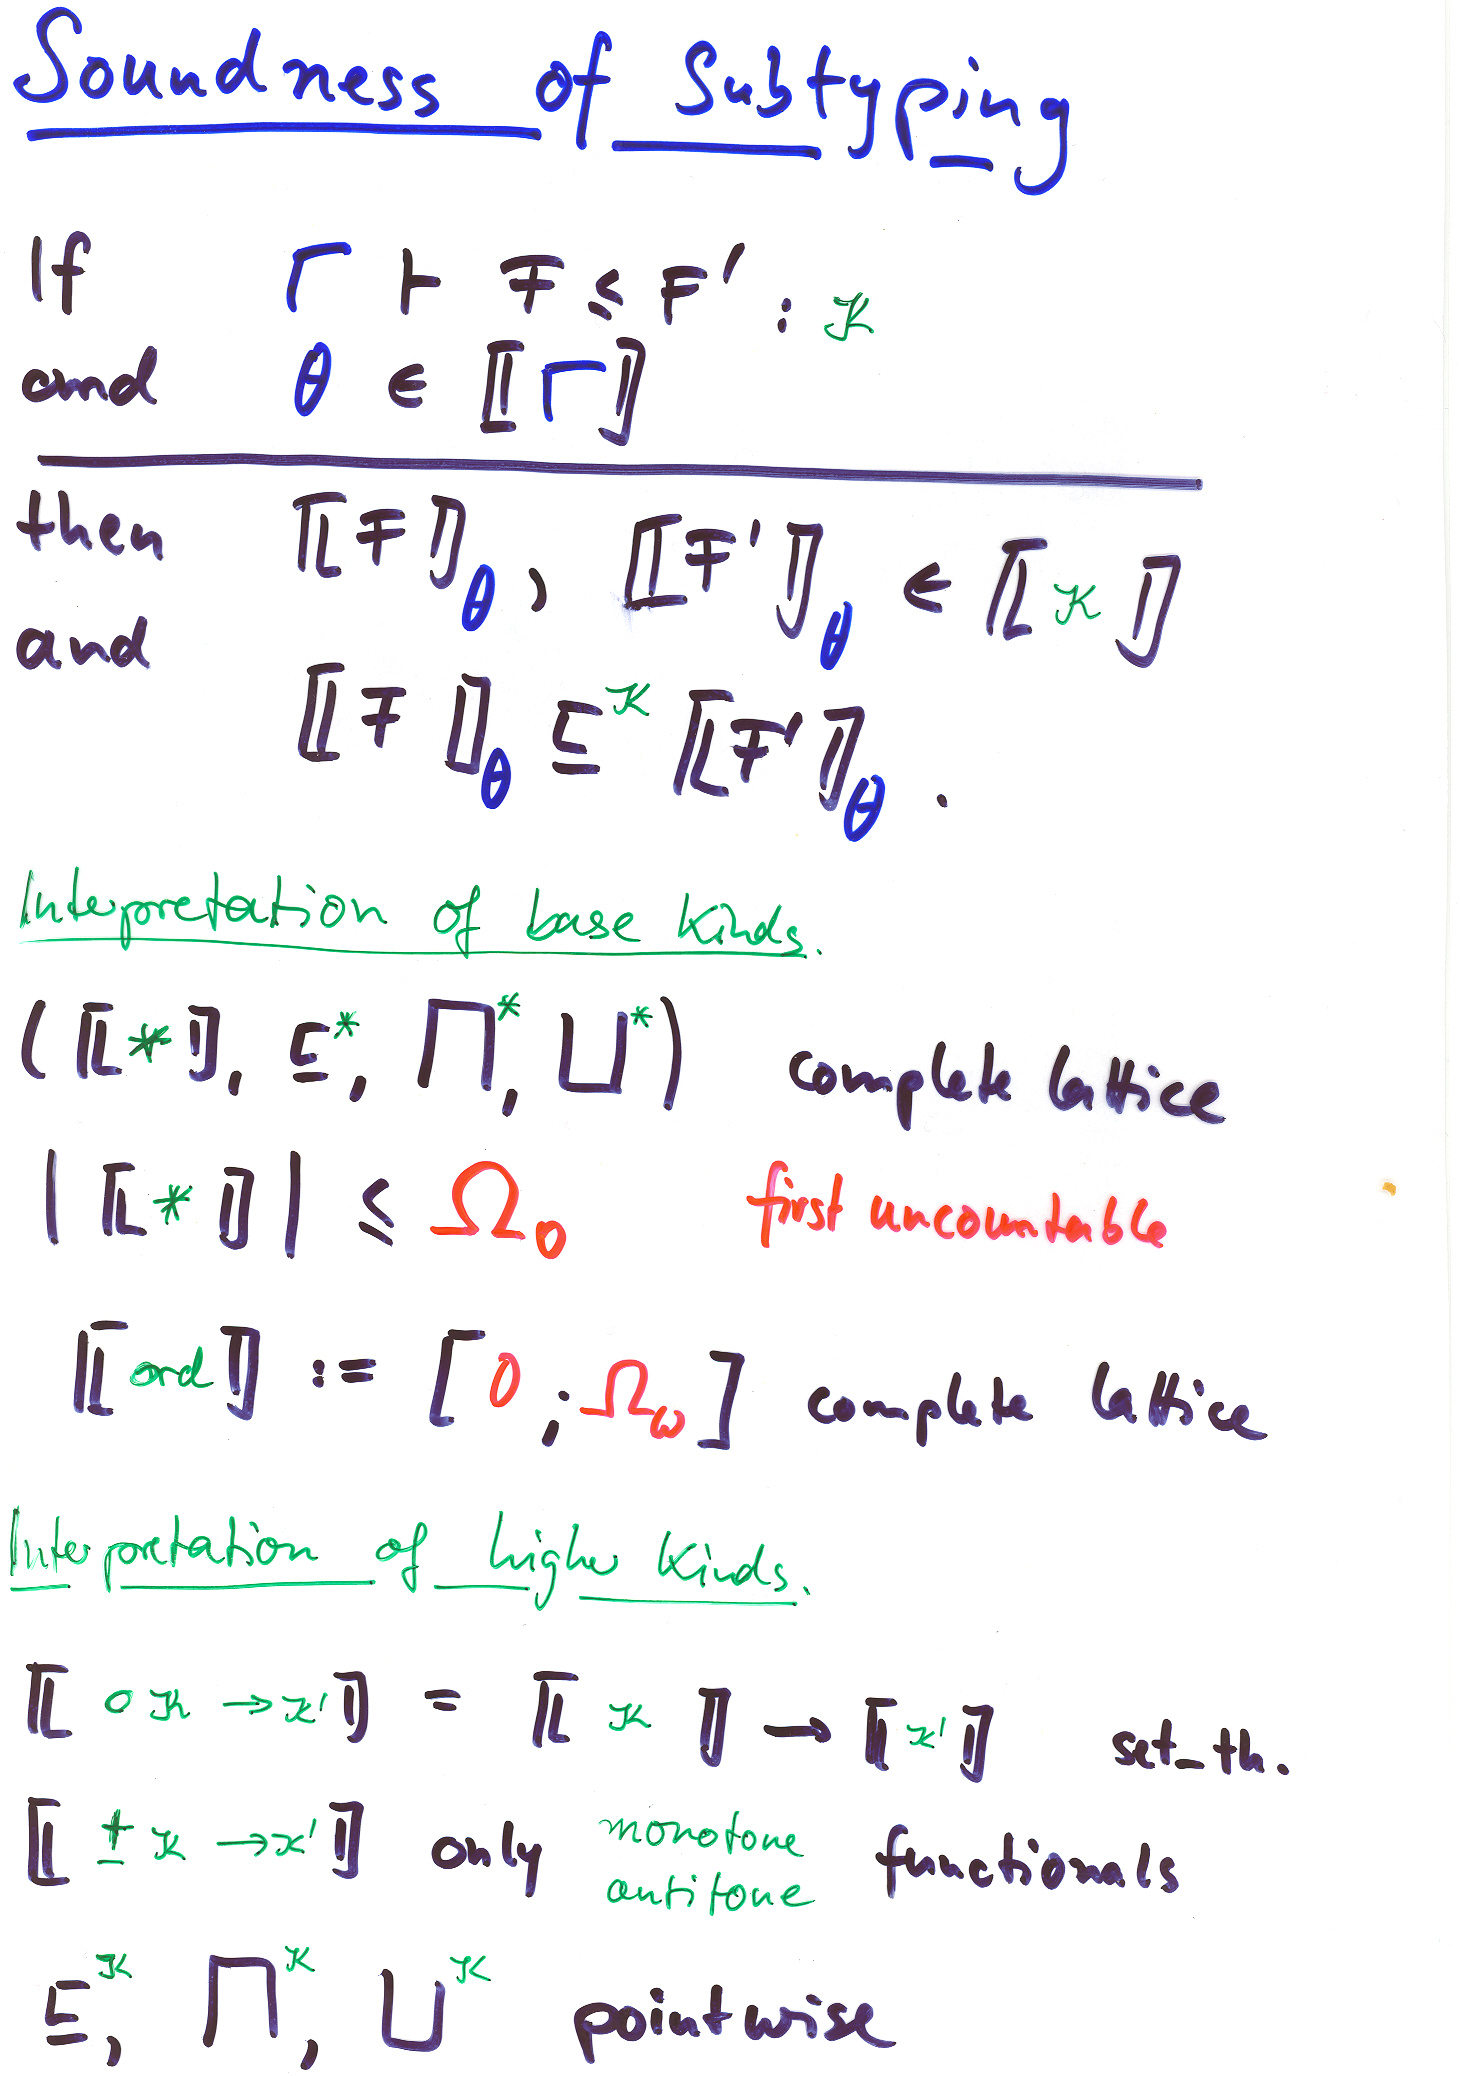 Soundness of Subtyping
If Γ ⊢ F ≤ F' : κ
and θ ∈ ⟦Γ⟧
then ⟦F⟧θ, ⟦F'⟧θ ∈ ⟦κ⟧
and
⟦F⟧θ ⊑^κ ⟦F'⟧θ.
Interpretation of base kinds.
(⟦*⟧, ⊑*, ⊓*, ⊔*) complete lattice
|⟦*⟧| ≤ Ω₀ first uncountable
⟦ord⟧ := [0 ; Ω_ω] complete lattice
Interpretation of higher kinds.
⟦∘κ → κ'⟧ = ⟦κ⟧ → ⟦κ'⟧ set-th.
⟦±κ → κ'⟧ only monotone functionals
antitone
⊑^κ, ⊓^κ, ⊔^κ pointwise